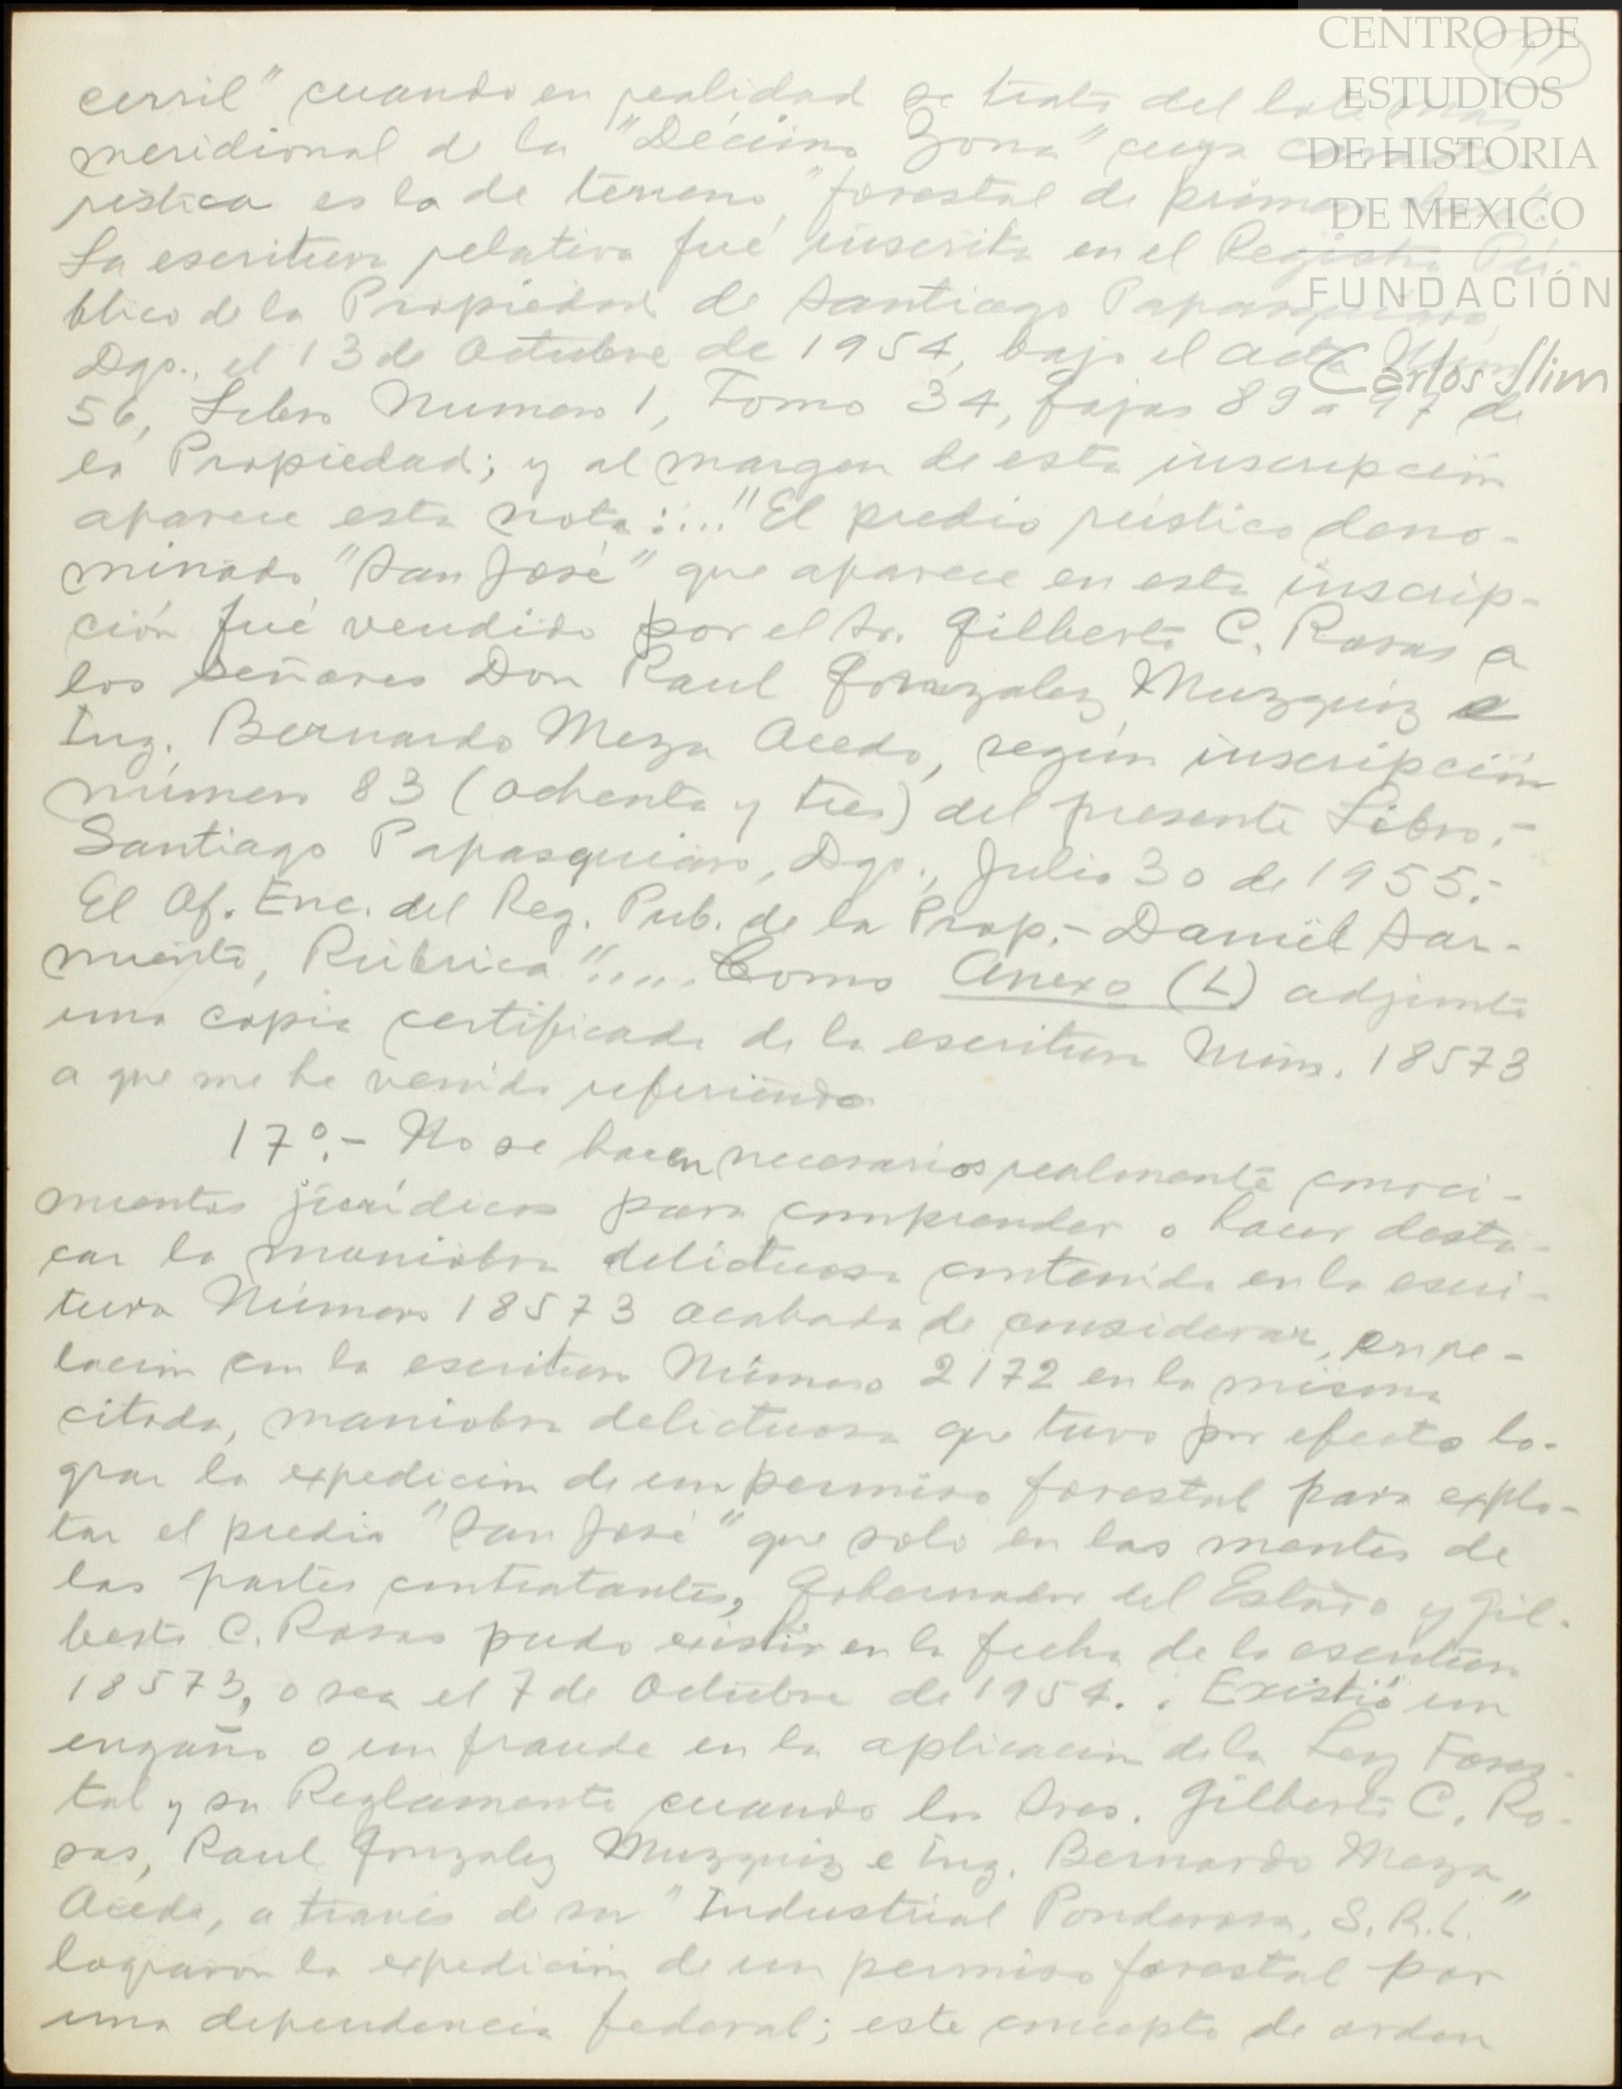 CENTRO DE
ESTUDIOS
DE HISTORIA
DE MEXICO
FUNDACIÓN
Carlos Slim
cerril" cuando en realidad se trata del lote más
meridional de la "Décima Zona" cuya
rística es la de terreno "forestal de primera
La escritura relativa fué inscrita en el Registro Pú-
blico de la Propiedad de Santiago Papasquiaro,
Dgo., el 13 de Octubre de 1954, bajo el acta Núm
56, Libro Numero 1, Tomo 34, fojas 89 a 97 de
la Propiedad; y al margen de esta inscripción
aparece esta nota:..."El predio rústico deno-
minado "San José" que aparece en esta inscrip-
ción fué vendido por el Sr. Gilberto C. Rosas a
los señores Don Raul Gonzalez Muzquiz e
Ing. Bernardo Meza Acedo, según inscripción
número 83 (ochenta y tres) del presente Libro.-
Santiago Papasquiaro, Dgo., Julio 30 de 1955.-
El Of. Enc. del Reg. Pub. de la Prop.- Daniel Sar-
miento, Rúbrica"..... Como Anexo (L) adjunto
una copia certificada de la escritura Núm. 18573
a que me he venido refiriendo
17º.- No se hacen necesarios realmente conoci-
mientos jurídicos para comprender o hacer desta-
car la maniobra delictuosa contenida en la escri-
tura Número 18573 acabada de considerar, en re-
lación con la escritura Número 2172 en la misma
citada, maniobra delictuosa que tuvo por efecto lo-
grar la expedición de un permiso forestal para explo-
tar el predio "San José" que solo en las mentes de
las partes contratantes, Gobernador del Estado y Gil-
berto C. Rosas pudo existir en la fecha de la escritura
18573, o sea el 7 de Octubre de 1954. . Existió un
engaño o un fraude en la aplicación de la Ley Fores-
tal y su Reglamento cuando los Sres. Gilberto C. Ro-
sas, Raul Gonzalez Muzquiz e Ing. Bernardo Meza
Acedo, a través de su "Industrial Ponderosa, S.R.L."
lograron la expedición de un permiso forestal por
una dependencia federal; este concepto de orden